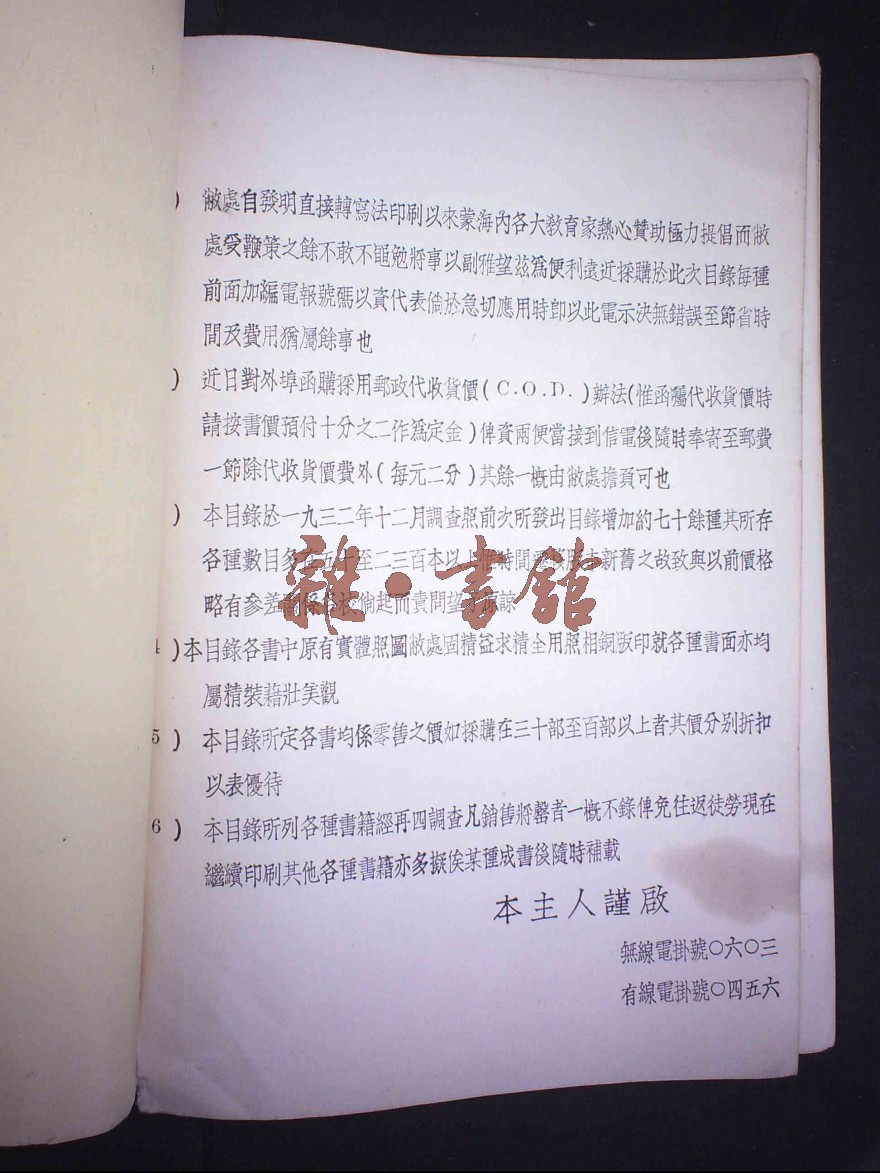 ) 敝處自發明直接轉寫法印刷以來蒙海內各大敎育家熱心贊助極力提倡而敝
處受鞭策之餘不敢不黽勉將事以副雅望兹爲便利遠近採購於此次目錄每種
前面加編電報號碼以資代表倘於急切應用時卽以此電示決無錯誤至節省時
間及費用猶屬餘事也
) 近日對外埠函購採用郵政代收貨價(C.O.D.)辦法(惟函囑代收貨價時
請按書價預付十分之二作爲定金)俾資兩便當接到信電後隨時奉寄至郵費
一節除代收貨價費外(每元二分)其餘一槪由敝處擔負可也
) 本目錄於一九三二年十二月調查照前次所發出目錄增加約七十餘種其所存
各種數目多在五十至二三百本以上惟時間版本新舊之故致與以前價格
略有參差倘起而責問望原諒
雜·書館
4)本目錄各書中原有實體照圖敝處固精益求精全用照相銅版印就各種書面亦均
屬精裝藉壯美觀
5) 本目錄所定各書均係零售之價如採購在三十部至百部以上者其價分别折扣
以表優待
6) 本目錄所列各種書籍經再四調查凡銷售將罄者一槪不錄俾免往返徒勞現在
繼續印刷其他各種書籍亦多擬俟某種成書後隨時補載
本主人謹啟
無線電掛號〇六〇三
有線電掛號〇四五六